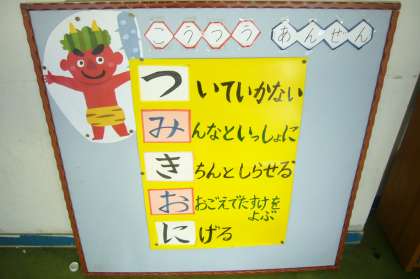 こうつう あんぜん
ついていかない
みんなといっしょに
きちんとしらせる
おおごえでたすけを
よぶ
にげる